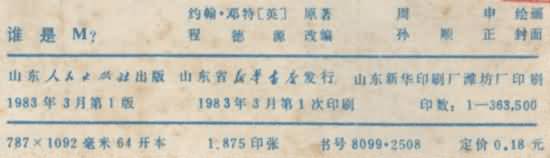 谁是M?
约翰·邓特[英] 原著 周申 绘画
程德源 改编 孙顺正 封面
山东人民出版社出版 山东省新华书店发行 山东新华印刷厂潍坊厂印刷
1983年3月第1版 1983年3月第1次印刷 印数：1—363,500
787×1092毫米64开本 1.875印张 书号8099·2508 定价0.18元